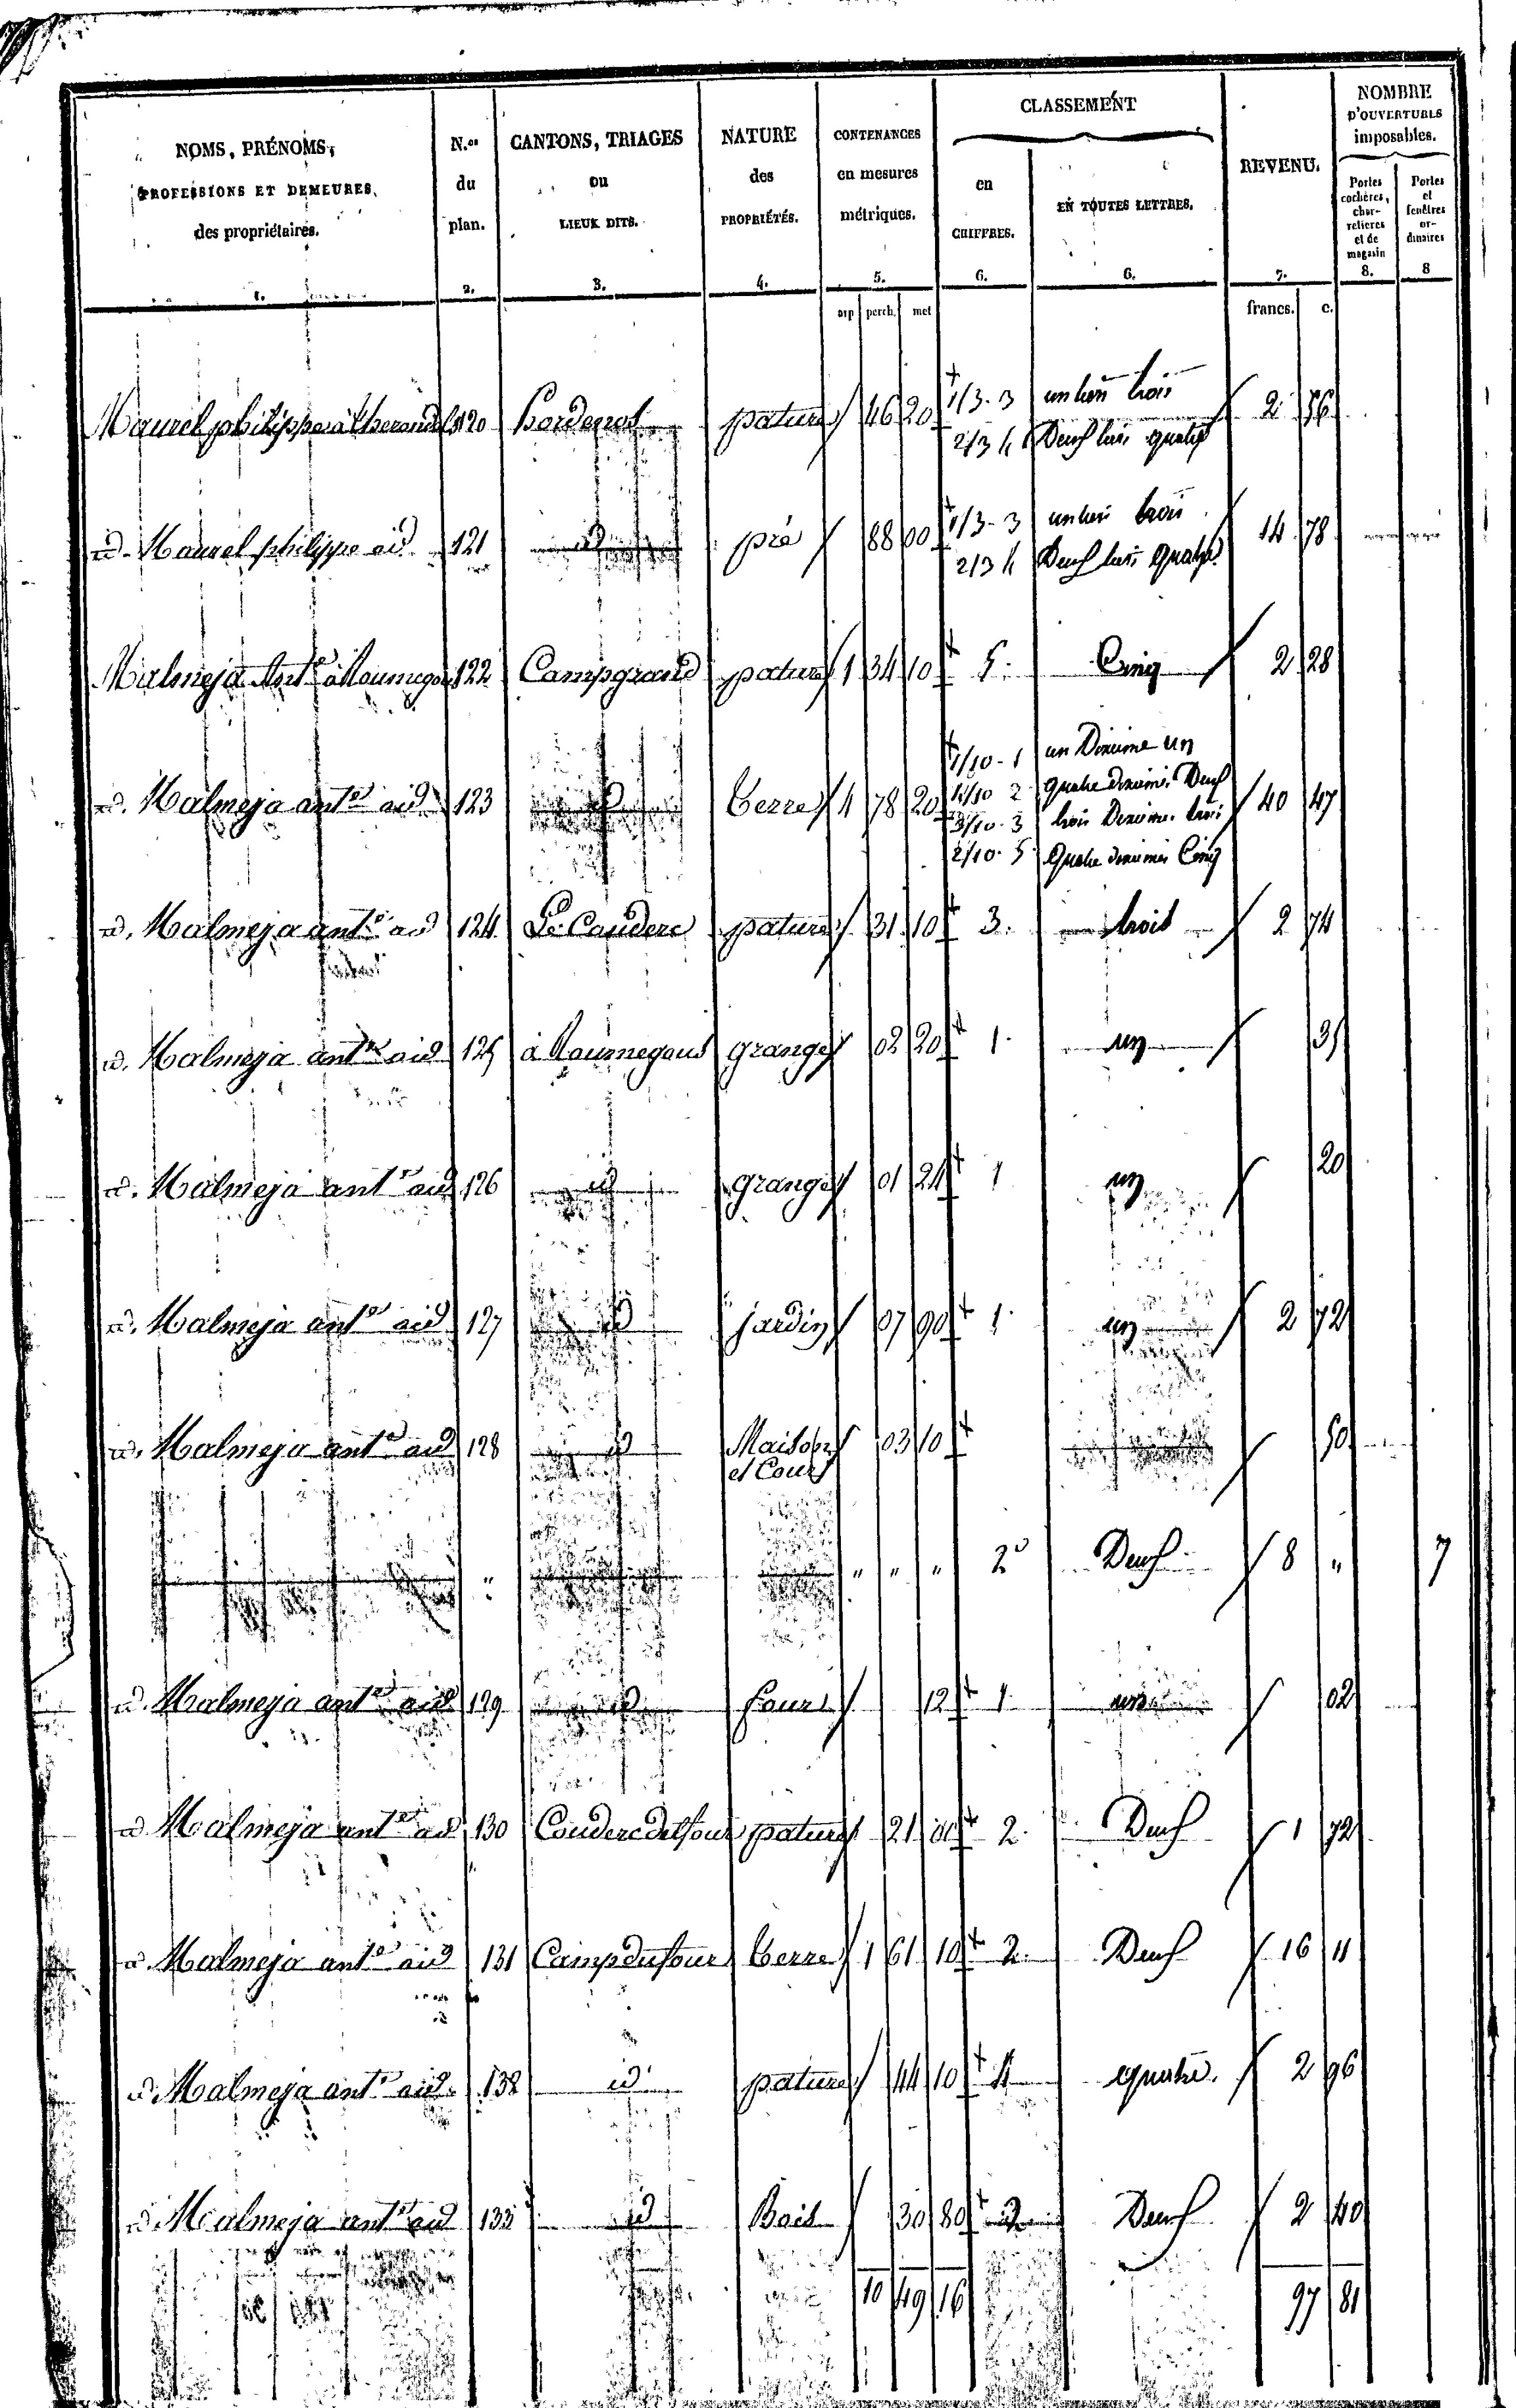 NOMS, PRÉNOMS, PROFESSIONS ET DEMEURES, des propriétaires. 1.
N.os du plan. 2.
CANTONS, TRIAGES ou LIEUX DITS. 3.
NATURE des PROPRIÉTÉS. 4.
CONTENANCES en mesures métriques. 5.
CLASSEMENT
en CHIFFRES. 6.
EN TOUTES LETTRES. 6.
REVENU. 7.
NOMBRE D'OUVERTURES imposables.
Portes cochères, charretieres et de magasin 8.
Portes et fenêtres ordinaires 8
arp perch. met francs. c.
Maurel philippe 120 pature 46 20 1/3-3 un tiers trois 2
2/3 4 Deux tiers quatre
id. Maurel philippe aid 121 id pré 88 00 1/3-3 un tiers trois 14 78
2/3 4 Deux tiers quatre
Malmeja Ant.e 122 Campgrand pature 1 34 10 5. Cinq 2 28
id. Malmeja ant.e aid 123 id terre 4 78 20 1/10-1 un Dixième un 40 47
4/10 2 quatre dixièm. Deux
3/10-3 trois Dixième trois
2/10-5 Quatre dixièmes Cinq
id. Malmeja ant.e aid 124 Le Couderc pature 31 10 3. trois 2 74
id. Malmeja ant.e aid 125 à Noumegous grange 02 20 1. un 35
id. Malmeja ant.e aid 126 id grange 01 24 1 un 20
id. Malmeja ant.e aid 127 id jardin 07 90 1. un 2 72
id. Malmeja ant.e aid 128 id Maison et Cour 03 10 50
" " " " 2e Deux 8 " 7
id. Malmeja ant.e aid 129 id four 12 1 un 02
id Malmeja ant.e aid 130 Couderc del four pature 21 00 2. Deux 1 72
id. Malmeja ant.e aid 131 Camp du four terre 1 61 10 2. Deux 16 11
id. Malmeja ant.e aid. 132 id pature 44 10 4 quatre. 2 96
id. Malmeja ant.e aid 133 id Bois 30 80 2 Deux 2 40
10 49 16 97 81